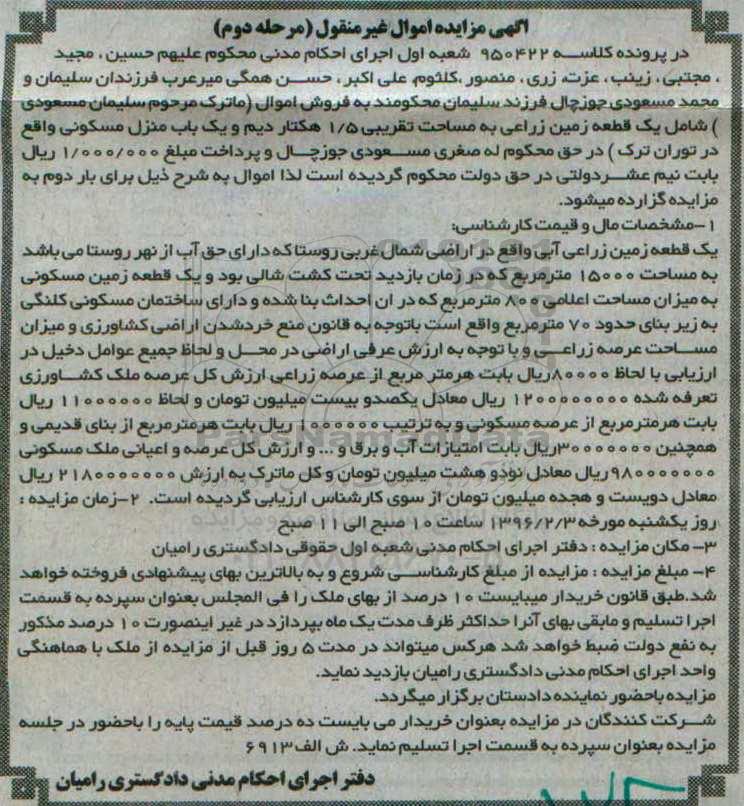 آگهی مزایده اموال غیر منقول (مرحله دوم)
در پرونده کلاسه ۹۵۰۴۲۲ شعبه اول اجرای احکام مدنی محکوم علیهم حسین ، مجید
، مجتبی ، زینب ، عزت، زری ، منصور ،کلثوم، علی اکبر ، حسن همگی میرعرب فرزندان سلیمان و
محمد مسعودی جوزچال فرزند سلیمان محکومند به فروش اموال (ماترک مرحوم سلیمان مسعودی
) شامل یک قطعه زمین زراعی به مساحت تقریبی ۱/۵ هکتار دیم و یک باب منزل مسکونی واقع
در توران ترک ) در حق محکوم له صغری مسعودی جوزچال و پرداخت مبلغ ۱/۰۰۰/۰۰۰ ریال
بابت نیم عشردولتی در حق دولت محکوم گردیده است لذا اموال به شرح ذیل برای بار دوم به
مزایده گزارده میشود.
۱-مشخصات مال و قیمت کارشناسی:
یک قطعه زمین زراعی آبی واقع در اراضی شمال غربی روستا که دارای حق آب از نهر روستا می باشد
به مساحت ۱۵۰۰۰ مترمربع که در زمان بازدید تحت کشت شالی بود و یک قطعه زمین مسکونی
به میزان مساحت اعلامی ۸۰۰ مترمربع که در ان احداث بنا شده و دارای ساختمان مسکونی کلنگی
به زیر بنای حدود ۷۰ مترمربع واقع است باتوجه به قانون منع خردشدن اراضی کشاورزی و میزان
مساحت عرصه زراعی و با توجه به ارزش عرفی اراضی در محل و لحاظ جمیع عوامل دخیل در
ارزیابی با لحاظ ۸۰۰۰۰ریال بابت هرمتر مربع از عرصه زراعی ارزش کل عرصه ملک کشاورزی
تعرفه شده ۱۲۰۰۰۰۰۰۰۰ ریال معادل یکصدو بیست میلیون تومان و لحاظ ۱۱۰۰۰۰۰ ریال
بابت هرمترمربع از عرصه مسکونی و به ترتیب ۱۰۰۰۰۰۰ ریال بابت هرمترمربع از بنای قدیمی و
همچنین ۳۰۰۰۰۰۰۰ریال بابت امتیازات آب و برق و ... و ارزش کل عرصه و اعیانی ملک مسکونی
۹۸۰۰۰۰۰۰۰ ریال معادل نودو هشت میلیون تومان و کل ماترک به ارزش ۲۱۸۰۰۰۰۰۰۰ ریال
معادل دویست و هجده میلیون تومان از سوی کارشناس ارزیابی گردیده است. ۲-زمان مزایده :
روز یکشنبه مورخه ۱۳۹۶/۲/۳ ساعت ۱۰ صبح الی ۱۱ صبح
۳- مکان مزایده : دفتر اجرای احکام مدنی شعبه اول حقوقی دادگستری رامیان
۴- مبلغ مزایده : مزایده از مبلغ کارشناسی شروع و به بالاترین بهای پیشنهادی فروخته خواهد
شد.طبق قانون خریدار میبایست ۱۰ درصد از بهای ملک را فی المجلس بعنوان سپرده به قسمت
اجرا تسلیم و مابقی بهای آنرا حداکثر ظرف مدت یک ماه بپردازد در غیر اینصورت ۱۰ درصد مذکور
به نفع دولت ضبط خواهد شد هرکس میتواند در مدت ۵ روز قبل از مزایده از ملک با هماهنگی
واحد اجرای احکام مدنی دادگستری رامیان بازدید نماید.
مزایده باحضور نماینده دادستان برگزار میگردد.
شرکت کنندگان در مزایده بعنوان خریدار می بایست ده درصد قیمت پایه را باحضور در جلسه
مزایده بعنوان سپرده به قسمت اجرا تسلیم نماید. ش الف ۶۹۱۳
دفتر اجرای احکام مدنی دادگستری رامیان